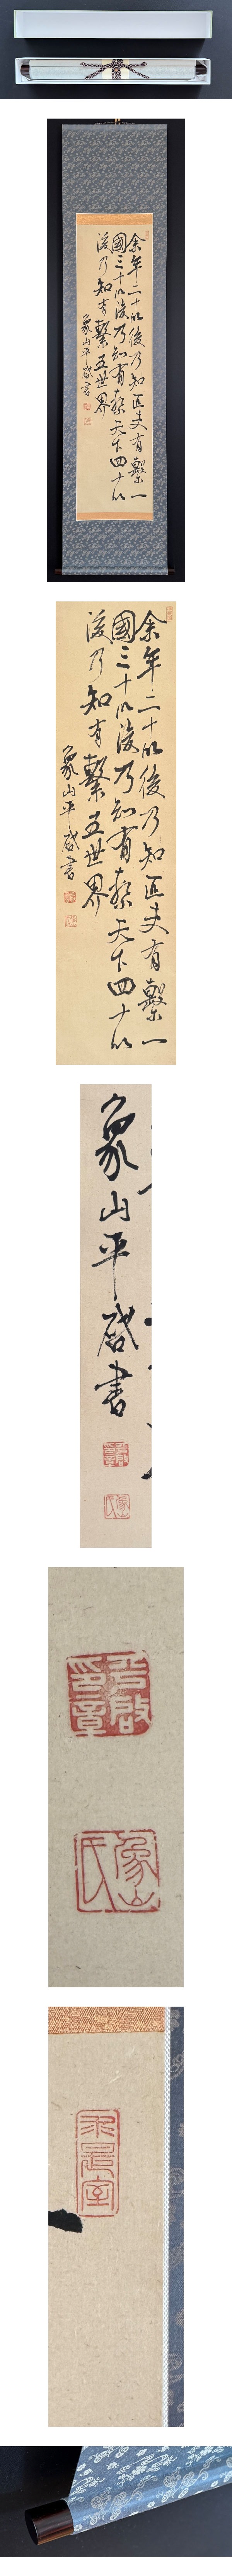 余年二十以後乃知匹夫有繫一
國三十以後乃知有繫天下四十以
後乃知有繫五世界
象山平啓書
余年二十以後乃知匹夫有繫一
國三十以後乃知有繫天下四十以
後乃知有繫五世界
象山平啓書
象山平啓書
平啓印章
象山氏